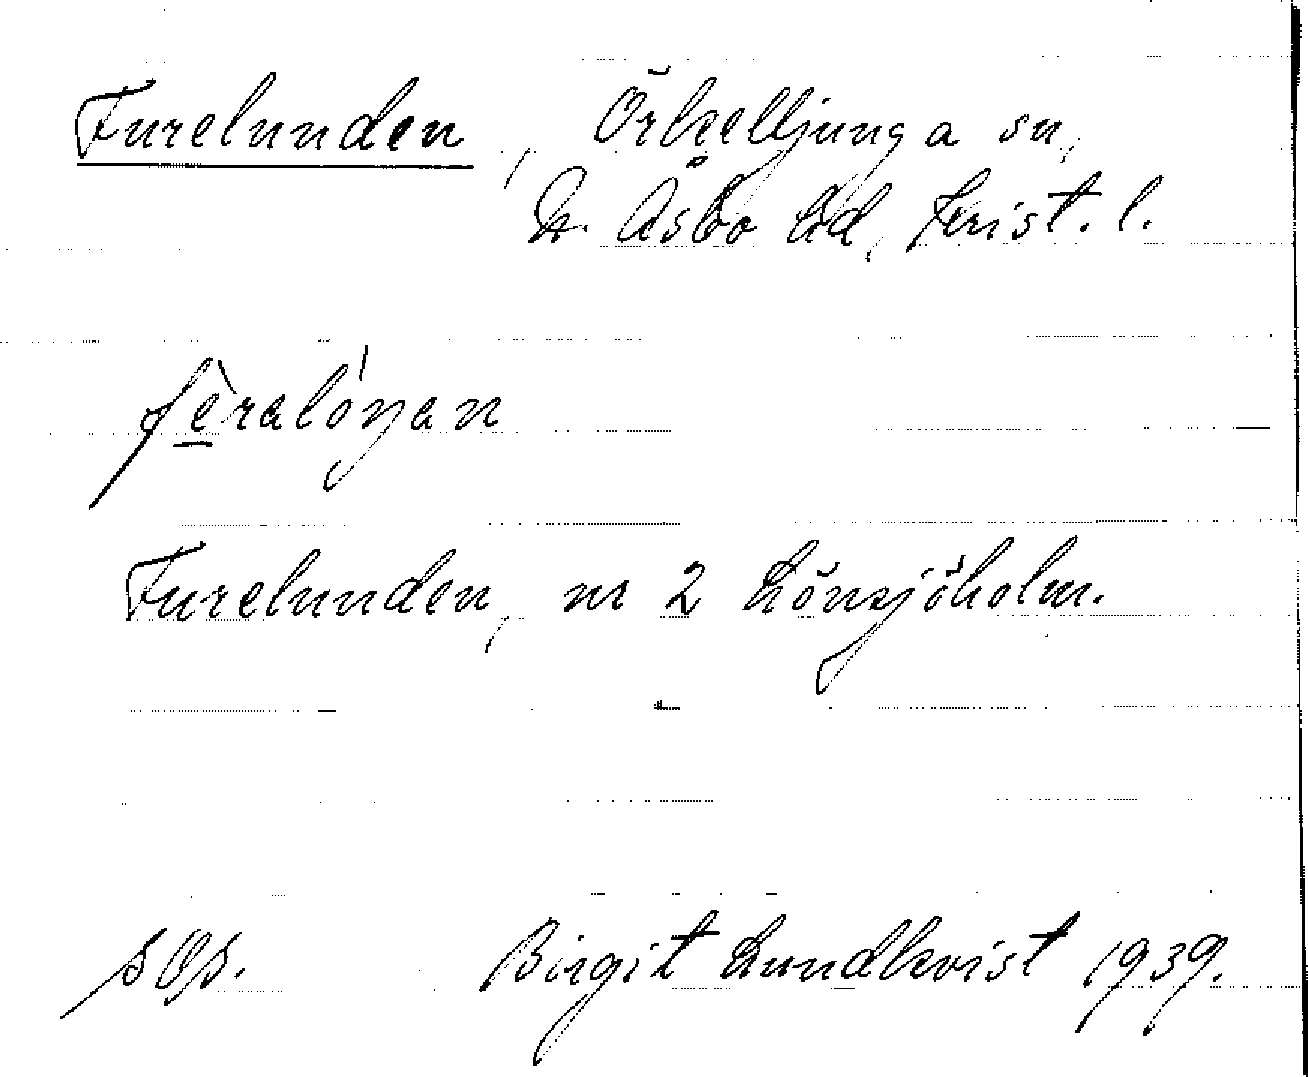 Furelunden, Örkelljunga sn,
N. Åsbo hd, Krist. l.
fèralóŋan
Furelunden, nr 2 Lönsjöholm.
Birgit Lundkvist 1939.